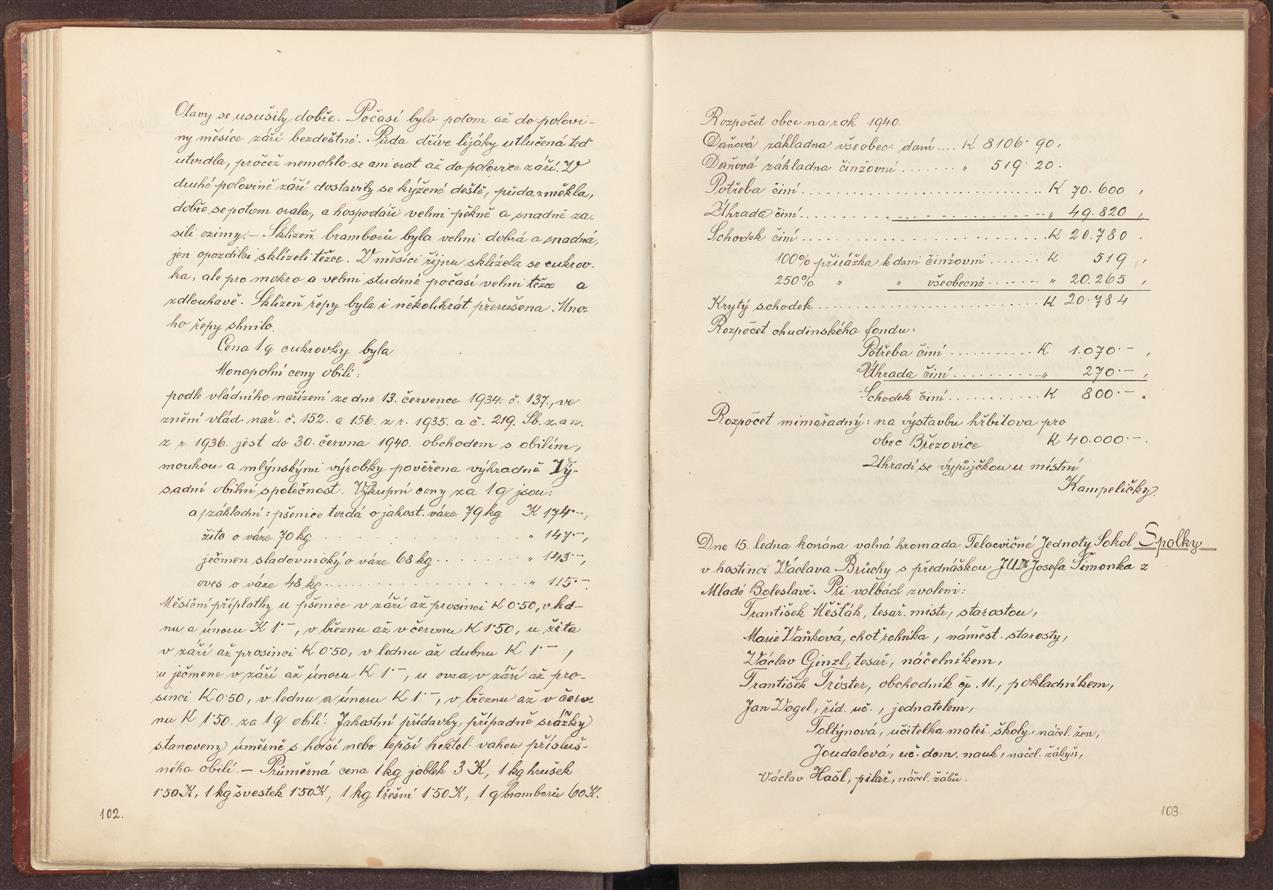 Otavy se usušily dobře. Počasí bylo potom až do polovi-
ny měsíce září bezdeštné. Půda dříve lijáky utlučená teď
utvrdla, pročež nemohlo se ani orat až do polovice září. V
druhé polovině září dostavily se kýžené deště, půda změkla,
dobře se potom orala, a hospodáři velmi pěkně a snadně za-
sili ozimy. – Sklizeň bramborů byla velmi dobrá a snadná,
jen opozdilci sklízeli těžce. V měsíci říjnu sklízela se cukrov-
ka, ale pro mokro a velmi studené počasí velmi těžce a
zdlouhavě. Sklizeň řepy byla i několikrát přerušena. Mno-
ho řepy shnilo.
Cena 1 q cukrovky byla
Monopolní ceny obilí:
podle vládního nařízení ze dne 13. července 1934. č. 137., ve
znění vlád. nař. č. 152. a 156. z r. 1935. a č. 219. Sb. z. a n.
z r. 1936. jest do 30. června 1940. obchodem s obilím,
moukou a mlýnskými výrobky pověřena výhradně Vý-
sadní obilní společnost. Výkupní ceny za 1 q jsou:
a) základní: pšenice tvrdá o jakost. váze 79 kg K 174·–,
žito o váze 70 kg .......... " 147·–,
ječmen sladovnický o váze 68 kg .......... " 143·–,
oves o váze 48 kg .......... " 115·–
Měsíční příplatky u pšenice v září až prosinci K 0·50, v led-
nu a únoru K 1·–, v březnu až v červnu K 1·50, u žita
v září až prosinci K 0·50, v lednu až dubnu K 1·–,
u ječmene v září až únoru K 1·–, u ovsa v září až pro-
sinci K 0·50, v lednu a únoru K 1·–, v březnu až v červ-
nu K 1·50. za 1 q obilí. Jakostní přídavky, případně srážky
stanoveny úměrně s horší nebo lepší hektol. vahou přísluš-
ného obilí. – Průměrná cena 1 kg jablek 3 K, 1 kg hrušek
1·50 K, 1 kg švestek 1·50 K, 1 kg třešní 1·50 K, 1 q bramborů 60 K.
102.
Rozpočet obce na rok 1940.
Daňová základna všeobec. daní .... K 8106·90,
Daňová základna činžovní ........ " 519·20.
Potřeba činí .......... K 70.600 ,
Úhrada činí .......... " 49.820 ,
Schodek činí .......... K 20.780 .
100% přirážka k dani činžovní ...... K 519 ,
250% " " všeobecné ........ " 20.265 ,
Krytý schodek .......... K 20.784
Rozpočet chudinského fondu:
Potřeba činí .......... K 1.070·– ,
Úhrada činí .......... " 270·– ,
Schodek činí .......... K 800·– .
Rozpočet mimořádný: na výstavbu hřbitova pro
obec Březovice K 40.000·– .
Uhradí se výpůjčkou u místní
Kampeličky.
Dne 15. ledna konána valná hromada Tělocvičné Jednoty Sokol Spolky
v hostinci Václava Brůchy s přednáškou JUDr Josefa Šimonka z
Mladé Boleslavě. Při volbách zvoleni:
František Měšťák, tesař. mistr, starostou,
Marie Vaňková, choť rolníka, náměst. starosty,
Václav Ginzl, tesař, náčelníkem,
František Tröster, obchodník čp. 11., pokladníkem,
Jan Vogel, říd. uč., jednatelem,
Toltýnová, učitelka mateř. školy, náčel. žen,
Joudalová, uč. dom. nauk, náčel. žákyň,
Václav Hašl, pilař, náčel. žáků.
103.